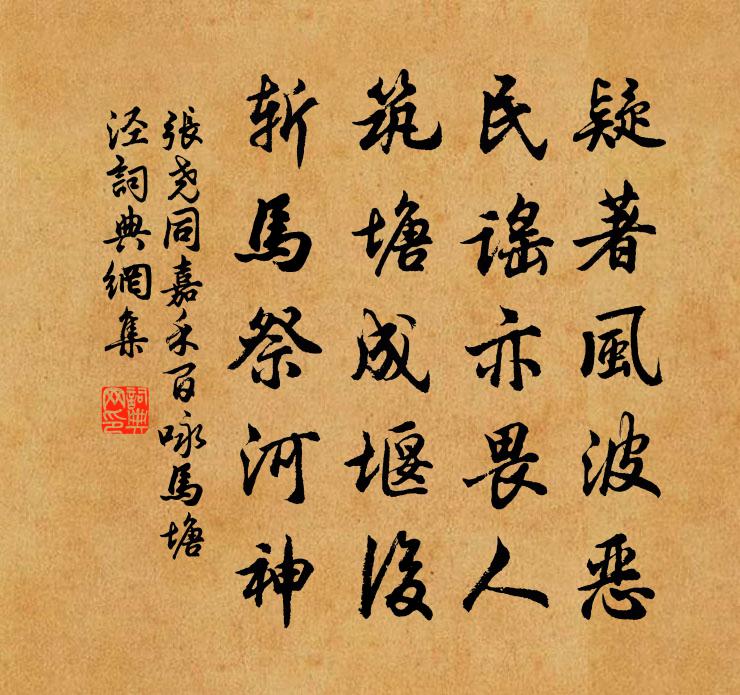 疑著風波惡
民謠亦畏人
筑塘成堰後
斬馬祭河神
張堯同嘉禾百咏馬塘
泾詞典網集
詞典网印